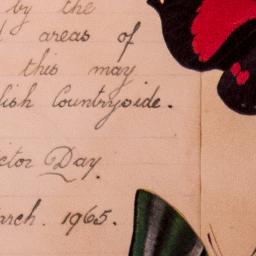 by the
areas of
this may
lish Countryside.
ctor Day.
arch. 1965.